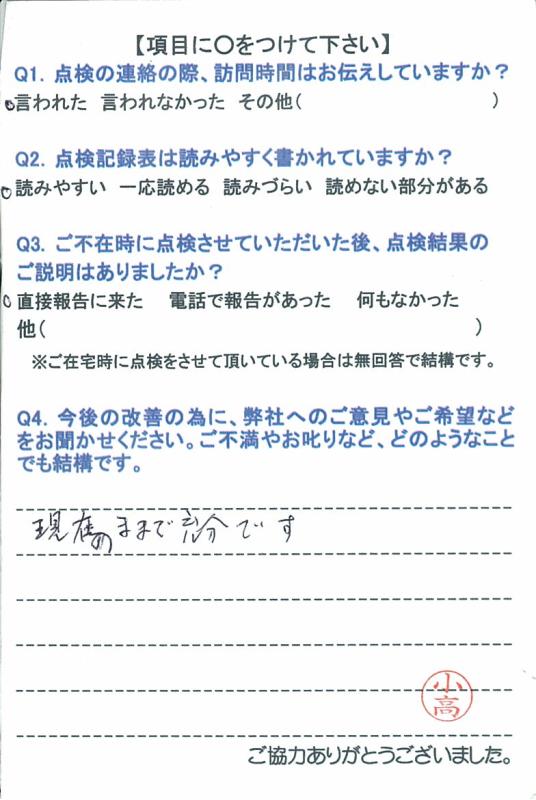 【項目に○をつけて下さい】
Q1. 点検の連絡の際、訪問時間はお伝えしていますか？
○言われた 言われなかった その他( )
Q2. 点検記録表は読みやすく書かれていますか？
○読みやすい 一応読める 読みづらい 読めない部分がある
Q3. ご不在時に点検させていただいた後、点検結果の
ご説明はありましたか？
○直接報告に来た 電話で報告があった 何もなかった
他( )
※ご在宅時に点検をさせて頂いている場合は無回答で結構です。
Q4. 今後の改善の為に、弊社へのご意見やご希望など
をお聞かせください。ご不満やお叱りなど、どのようなこと
でも結構です。
現在のままで充分です
小高
ご協力ありがとうございました。